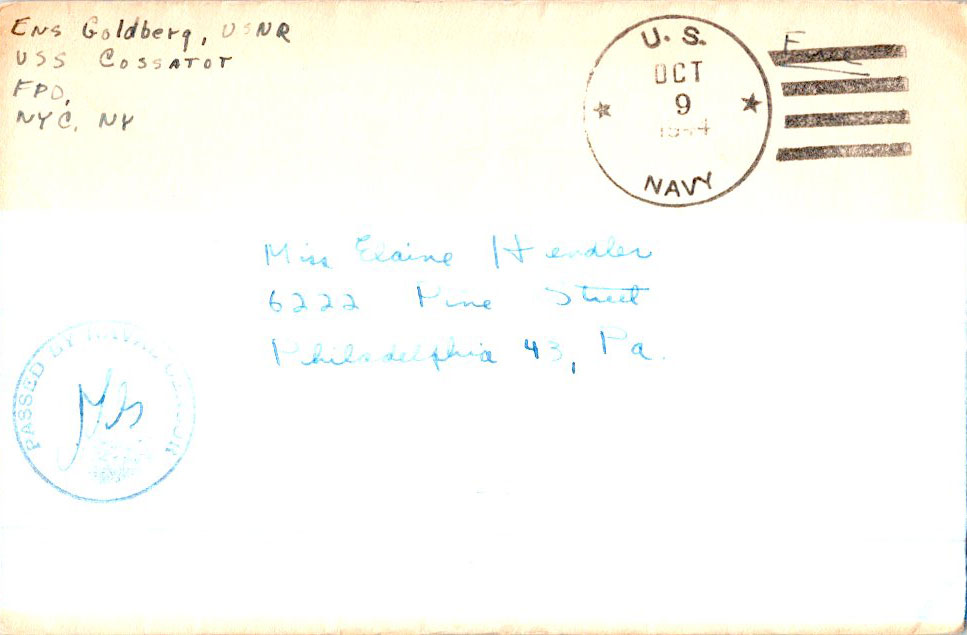 Ens Goldberg, USNR
USS Cossatot
FPO,
NYC, NY
U.S.
OCT
9
1944
NAVY
Miss Elaine Hendler
6222 Pine Street
Philadelphia 43, Pa.
PASSED BY NAVAL CENSOR